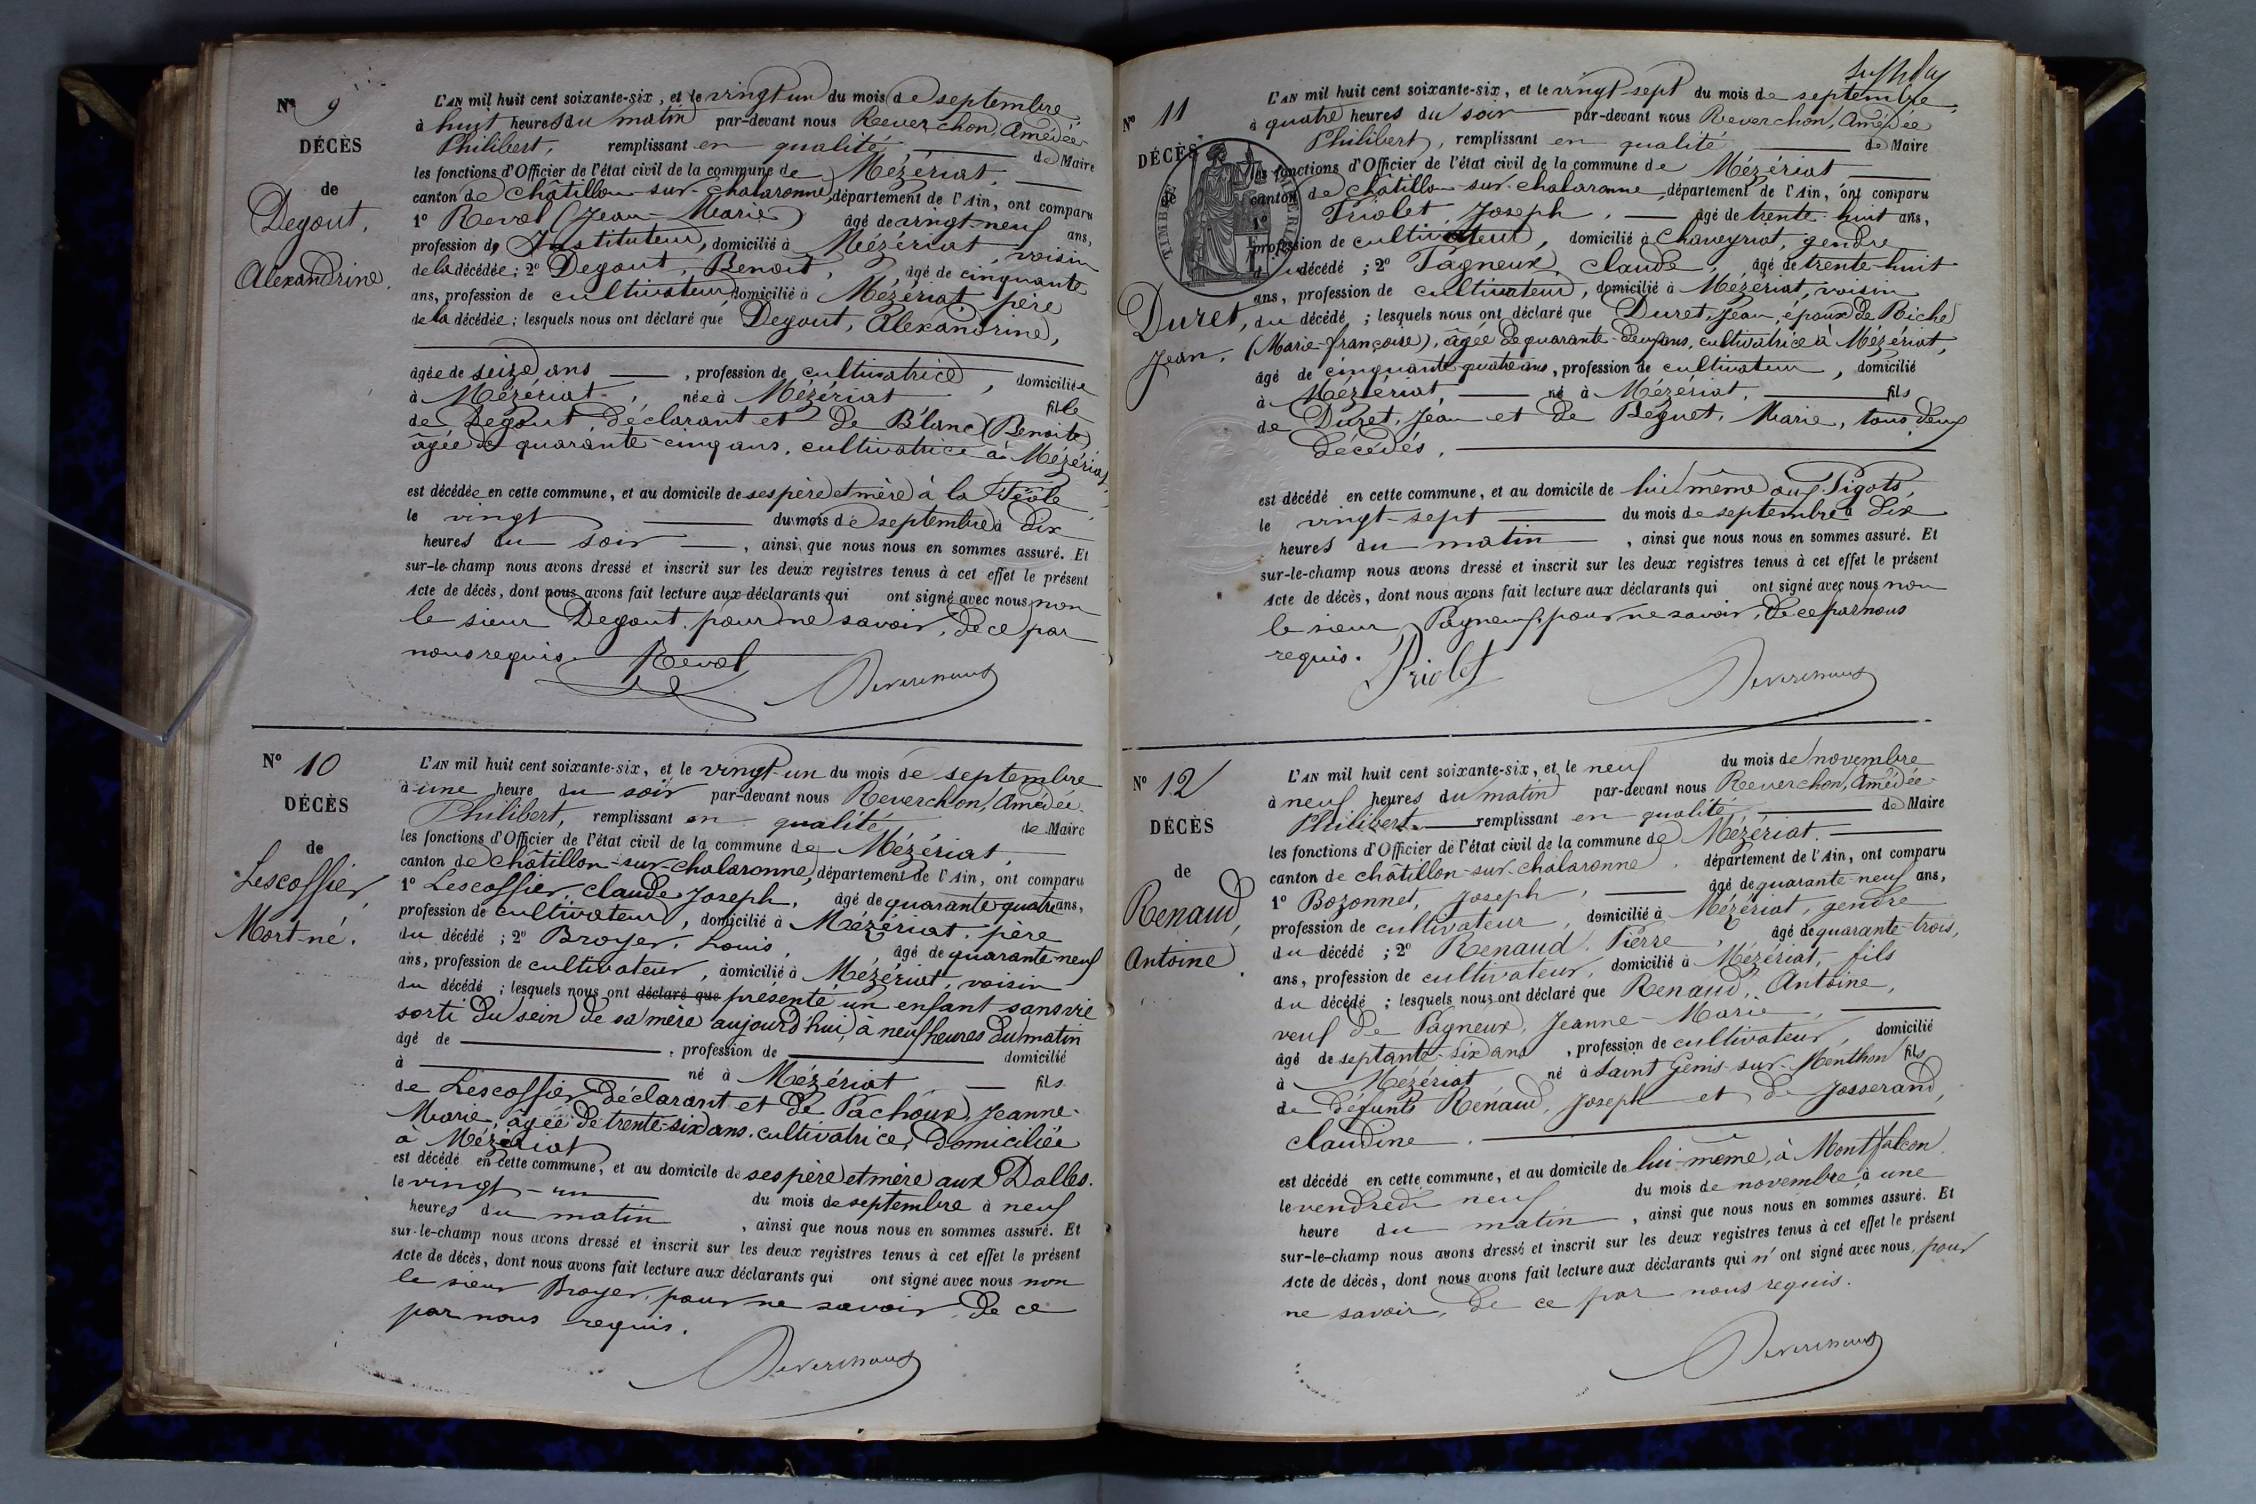 N° 9
DÉCÈS
de
Degout,
Alexandrine.
L'AN mil huit cent soixante-six, et le vingt un du mois de septembre,
à huit heures du matin par-devant nous Reverchon, Amédée
Philibert, remplissant en qualité de Maire
les fonctions d'Officier de l'état civil de la commune de Mézériat,
canton de châtillon-sur-chalaronne, département de l'Ain, ont comparu
1° Revol (Jean-Marie) âgé de vingt-neuf ans,
profession de Instituteur, domicilié à Mézériat, voisin
de la décédée ; 2° Degout, Benoit, âgé de cinquante
ans, profession de cultivateur, domicilié à Mézériat, père
de la décédée ; lesquels nous ont déclaré que Degout, Alexandrine,
âgée de seize ans, profession de cultivatrice, domiciliée
à Mézériat, née à Mézériat fille
de Degout, déclarant et de Blanc (Benoite)
âgée de quarante-cinq ans, cultivatrice à Mézériat,
est décédée en cette commune, et au domicile de ses père et mère à la
le vingt du mois de septembre à dix
heures du soir, ainsi que nous nous en sommes assuré. Et
sur-le-champ nous avons dressé et inscrit sur les deux registres tenus à cet effet le présent
Acte de décès, dont nous avons fait lecture aux déclarants qui ont signé avec nous non
le sieur Degout, pour ne savoir, de ce par
nous requis. Revol
N° 10
DÉCÈS
de
Lescoffier,
Mort-né.
L'AN mil huit cent soixante-six, et le vingt-un du mois de septembre
à une heure du soir par-devant nous Reverchon, Amédée
Philibert, remplissant en qualité de Maire
les fonctions d'Officier de l'état civil de la commune de Mézériat,
canton de châtillon-sur-chalaronne, département de l'Ain, ont comparu
1° Lescoffier, claude Joseph, âgé de quarante quatre ans,
profession de cultivateur, domicilié à Mézériat, père
du décédé ; 2° Broyer, Louis, âgé de quarante-neuf
ans, profession de cultivateur, domicilié à Mézériat, voisin
du décédé ; lesquels nous ont déclaré que présenté un enfant sans vie
sorti du sein de sa mère aujourd'hui, à neuf heures du matin
âgé de , profession de domicilié
à né à Mézériat fils
de Lescoffier, déclarant et de Pachoux, Jeanne-
Marie, âgée de trente-six ans, cultivatrice, domiciliée
à Mézériat
est décédé en cette commune, et au domicile de ses père et mère aux Dalles.
le vingt-un du mois de septembre à neuf
heures du matin, ainsi que nous nous en sommes assuré. Et
sur-le-champ nous avons dressé et inscrit sur les deux registres tenus à cet effet le présent
Acte de décès, dont nous avons fait lecture aux déclarants qui ont signé avec nous non
le sieur Broyer, pour ne savoir, de ce
par nous requis.
N° 11
DÉCÈS
de
Duret,
Jean.
L'AN mil huit cent soixante-six, et le vingt-sept du mois de septembre,
à quatre heures du soir par-devant nous Reverchon, Amédée
Philibert, remplissant en qualité de Maire
les fonctions d'Officier de l'état civil de la commune de Mézériat
canton de châtillon-sur-chalaronne, département de l'Ain, ont comparu
1° Priolet, Joseph, âgé de trente-huit ans,
profession de cultivateur, domicilié à chaveyriat, gendre
du décédé ; 2° Pagneux, claude, âgé de trente-huit
ans, profession de cultivateur, domicilié à Mézériat, voisin
du décédé ; lesquels nous ont déclaré que Duret, Jean, époux de Riche
(Marie-françoise), âgée de quarante-deux ans, cultivatrice à Mézériat,
âgé de cinquante-quatre ans, profession de cultivateur, domicilié
à Mézériat, né à Mézériat, fils
de Duret, Jean et de Beguet, Marie, tous deux
décédés,
est décédé en cette commune, et au domicile de lui même aux Pigots,
le vingt-sept du mois de septembre à dix
heures du matin, ainsi que nous nous en sommes assuré. Et
sur-le-champ nous avons dressé et inscrit sur les deux registres tenus à cet effet le présent
Acte de décès, dont nous avons fait lecture aux déclarants qui ont signé avec nous non
le sieur Pagneux, pour ne savoir, de ce par nous
requis. Priolet
N° 12
DÉCÈS
de
Renaud,
Antoine.
L'AN mil huit cent soixante-six, et le neuf du mois de novembre
à neuf heures du matin par-devant nous Reverchon, Amédée
Philibert, remplissant en qualité de Maire
les fonctions d'Officier de l'état civil de la commune de Mézériat.
canton de châtillon-sur-chalaronne, département de l'Ain, ont comparu
1° Bozonnet, Joseph, âgé de quarante-neuf ans,
profession de cultivateur, domicilié à Mézériat, gendre
du décédé ; 2° Renaud, Pierre, âgé de quarante-trois,
ans, profession de cultivateur, domicilié à Mézériat, fils
du décédé ; lesquels nous ont déclaré que Renaud, Antoine,
veuf de Pagneux, Jeanne-Marie,
âgé de septante-six ans, profession de cultivateur, domicilié
à Mézériat né à Saint Genis-sur-Menthon fils
de défunts Renaud, Joseph et de Josserand,
claudine.
est décédé en cette commune, et au domicile de lui-même, à Montfalcon
le vendredi neuf du mois de novembre à une
heure du matin, ainsi que nous nous en sommes assuré. Et
sur-le-champ nous avons dressé et inscrit sur les deux registres tenus à cet effet le présent
Acte de décès, dont nous avons fait lecture aux déclarants qui n'ont signé avec nous, pour
ne savoir, de ce par nous requis.